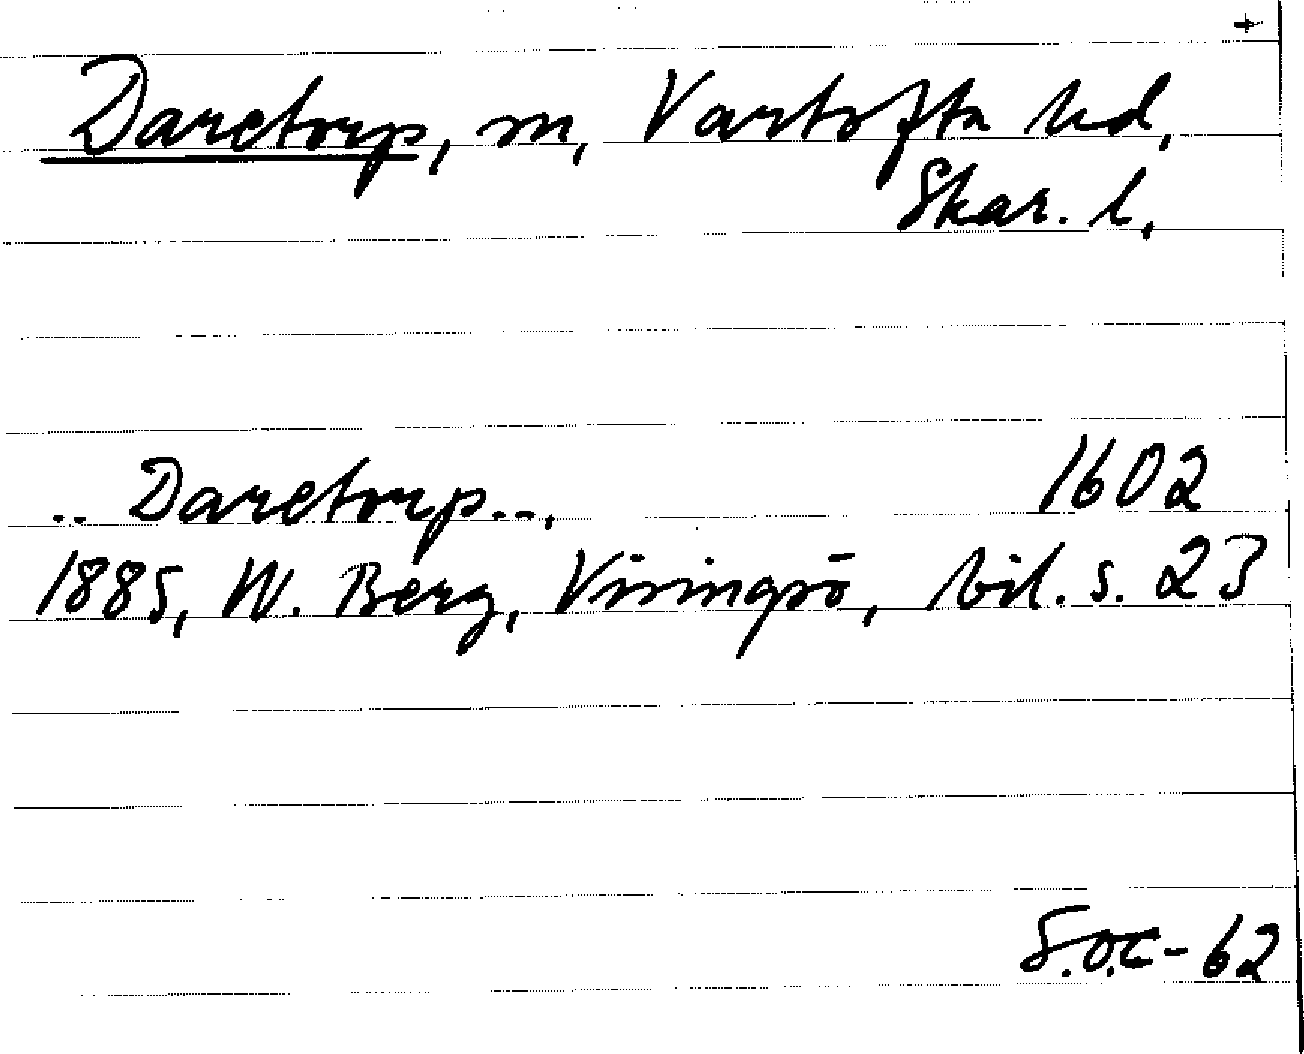 +
Daretorp, sn, Vartofta hd,
Skar. l,
.. Daretorp.., 1602
1885, W. Berg, Visingsö, bil. s. 23
S.O.C-62